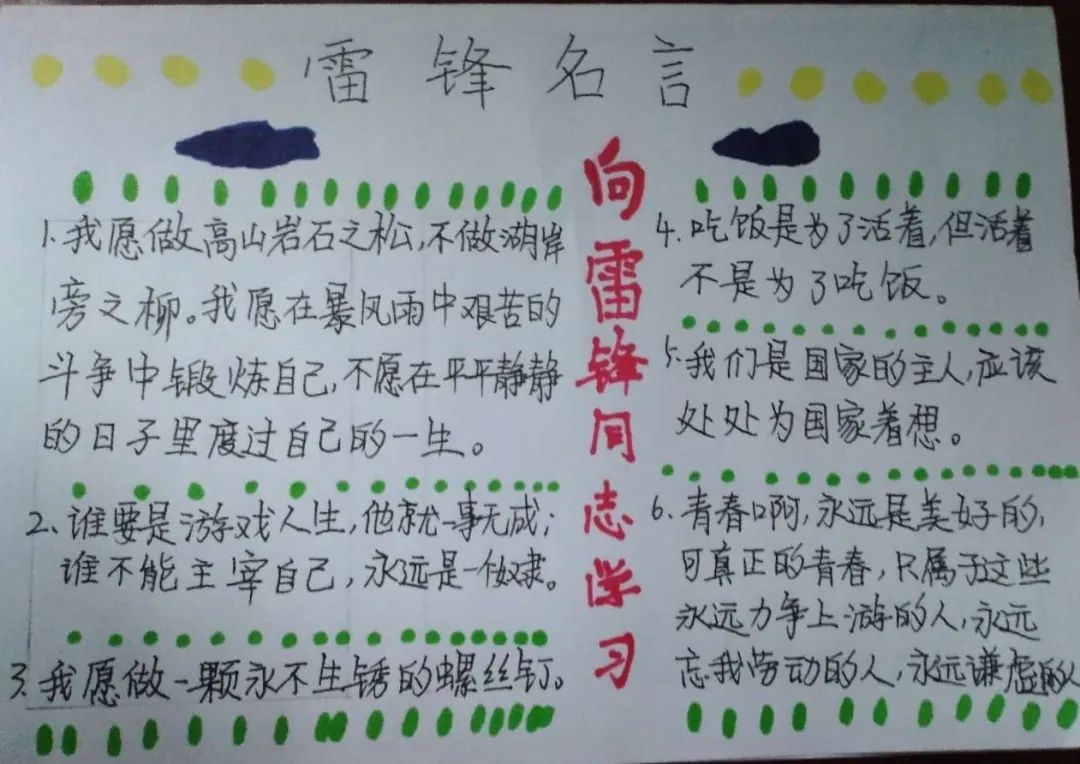 雷锋名言
1.我愿做高山岩石之松,不做湖岸
旁之柳。我愿在暴风雨中艰苦的
斗争中锻炼自己,不愿在平平静静
的日子里度过自己的一生。
2.谁要是游戏人生,他就一事无成;
谁不能主宰自己,永远是一个奴隶。
3.我愿做一颗永不生锈的螺丝钉。
向雷锋同志学习
4.吃饭是为了活着,但活着
不是为了吃饭。
5.我们是国家的主人,应该
处处为国家着想。
6.青春啊,永远是美好的,
可真正的青春,只属于这些
永远力争上游的人,永远
忘我劳动的人,永远谦虚的人